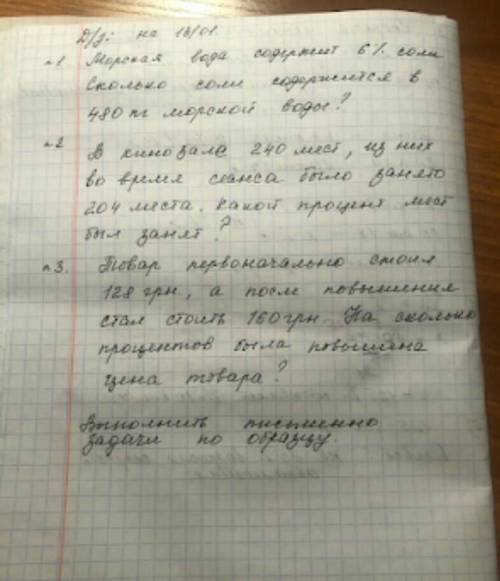 Д/з: на 18/01.
н1 Морская вода содержит 6% соли
Сколько соли содержится в
480 кг морской воды?
н2
В кинозале 240 мест, из них
во время сеанса было занято
204 места. Какой процент мест
был занят?
н3. Товар первоначально стоил
128 грн., а после повышения
стал стоить 160 грн. На сколько
процентов была повышена
цена товара?
Выполнить письменно
задачи по образцу.